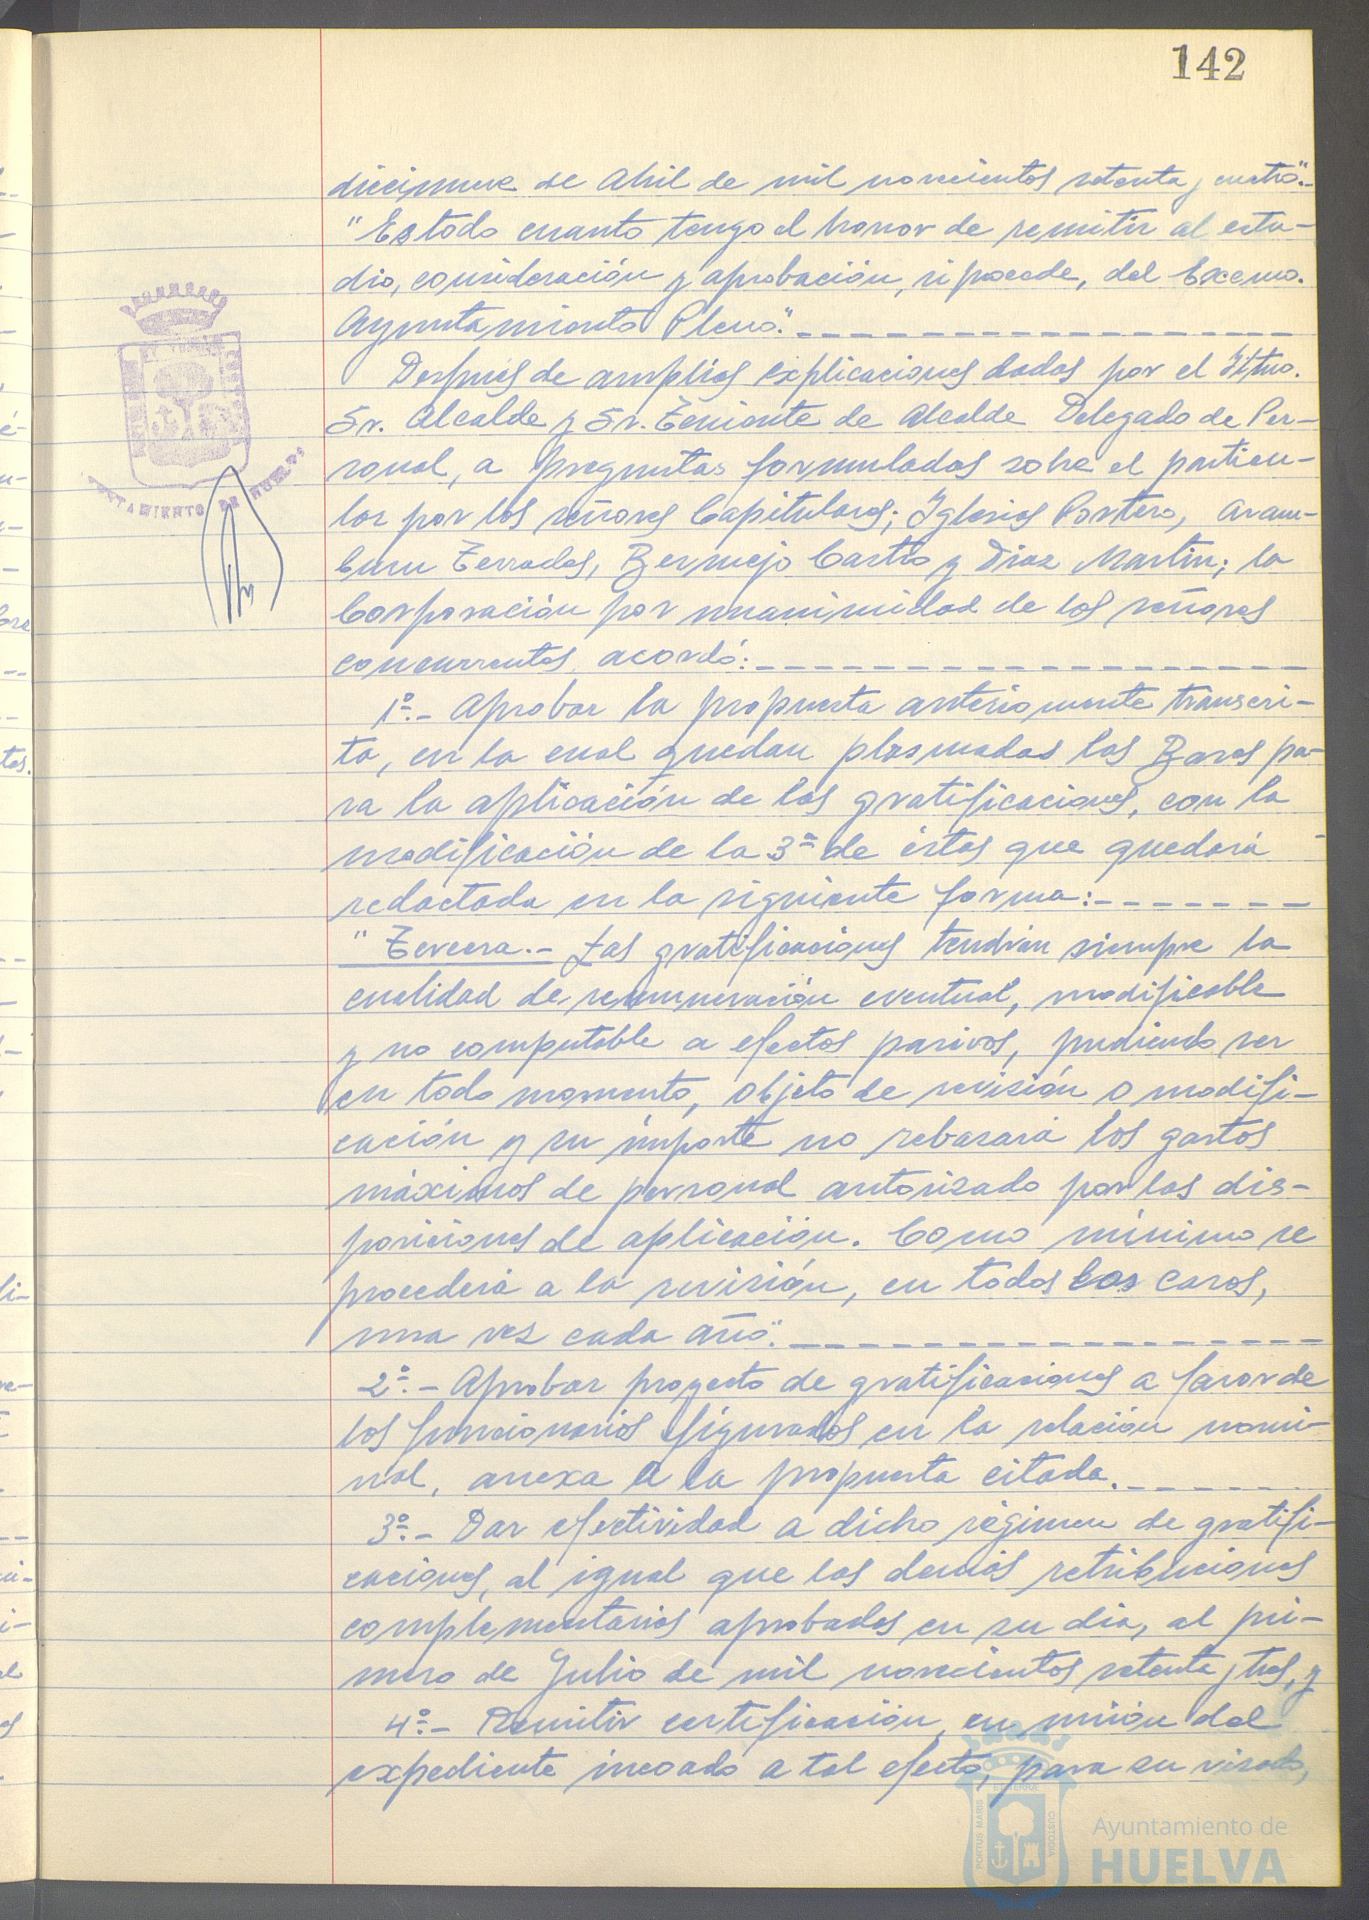 142
diecinueve de Abril de mil novecientos setenta y cuatro".-
"Es todo cuanto tengo el honor de remitir al estu-
dio, consideración y aprobación, si procede, del Excmo.
Ayuntamiento Pleno".
Después de amplias explicaciones dadas por el Iltmo.
Sr. Alcalde y Sr. Teniente de Alcalde Delegado de Per-
sonal, a preguntas formuladas sobre el particu-
lar por los señores Capitulares; Iglesias Portero, Aram-
buru Terrades, Bermejo Castro y Díaz Martín; la
Corporación por unanimidad de los señores
concurrentes, acordó:
1º.- Aprobar la propuesta anteriormente transcri-
ta, en la cual quedan plasmadas las Bases pa-
ra la aplicación de las gratificaciones, con la
modificación de la 3ª de éstas que quedará
redactada en la siguiente forma:
"Tercera.- Las gratificaciones tendrán siempre la
cualidad de remuneración eventual, modificable
y no computable a efectos pasivos, pudiendo ser
en todo momento, objeto de revisión o modifi-
cación y su importe no rebasará los gastos
máximos de personal autorizado por las dis-
posiciones de aplicación. Como mínimo se
procederá a la revisión, en todos los casos,
una vez cada año".
2º.- Aprobar proyecto de gratificaciones a favor de
los funcionarios figurados en la relación nomi-
nal, anexa a la propuesta citada.
3º.- Dar efectividad a dicho régimen de gratifi-
caciones, al igual que las demás retribuciones
complementarias aprobadas en su día, al pri-
mero de Julio de mil novecientos setenta y tres, y
4º.- Remitir certificación, en unión del
expediente incoado a tal efecto, para su visado,
AYUNTAMIENTO DE HUELVA
PORTUS MARIS ET TERRAE CUSTODIA
Ayuntamiento de
HUELVA